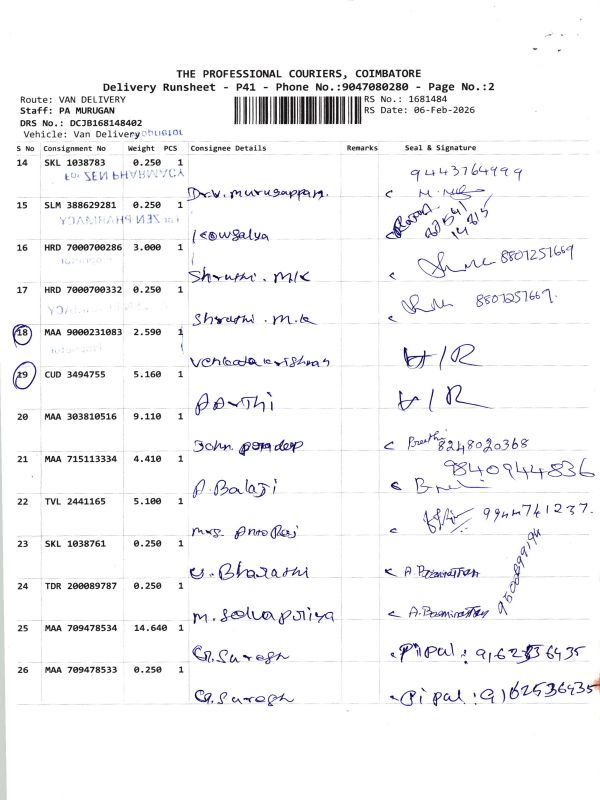 THE PROFESSIONAL COURIERS, COIMBATORE
Delivery Runsheet - P41 - Phone No.:9047080280 - Page No.:2
Route: VAN DELIVERY RS No.: 1681484
Staff: PA MURUGAN RS Date: 06-Feb-2026
DRS No.: DCJB168148402
Vehicle: Van Delivery
S No Consignment No Weight PCS Consignee Details Remarks Seal & Signature
14 SKL 1038783 0.250 1 9443764999
For ZEN PHARMACY
Dr.V. murugappan.
15 SLM 388629281 0.250 1
For ZEN PHARMACY
kowsalya
16 HRD 7000700286 3.000 1 8807257669
Shruthi. M.K
17 HRD 7000700332 0.250 1 8807257669.
Shruthi. M.K
18 MAA 9000231083 2.590 1
Venkatakrishnan
19 CUD 3494755 5.160 1
Parthi
20 MAA 303810516 9.110 1
John. pradeep 8248020368
21 MAA 715113334 4.410 1 9840944836
P. Balaji
22 TVL 2441165 5.100 1 9944741237.
23 SKL 1038761 0.250 1
V. Bharathi
24 TDR 200089787 0.250 1
25 MAA 709478534 14.640 1
G. Suresh Pipal: 9162536435
26 MAA 709478533 0.250 1
G. Suresh Pipal: 9162536435